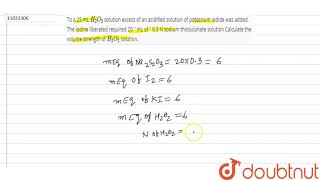 11033306
To a 25 mL H2O2 solution excess of an acidified solution of potassium iodide was added.
The iodine liberated required 20 mL of 0.3 N sodium thiosulphate solution Calculate the
volume strength of H2O2 solution.
mEq of Na2S2O3 = 20×0.3 = 6
mEq of I2 = 6
mEq of KI = 6
mEq of H2O2 = 6
N of H2O2 =
doubtnut